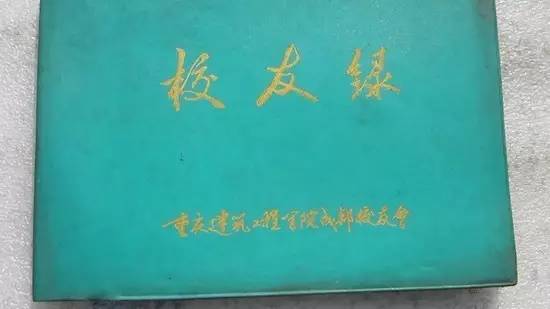 校友録
重庆建筑工程学院成都校友會